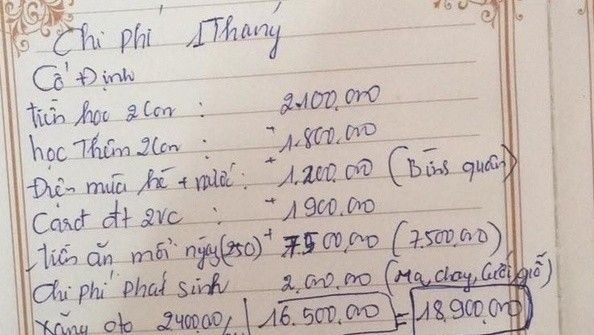 Chi phí 1Tháng
Cố Định
tiền học 2con : 2.100.000
học Thêm 2con : + 1.800.000
Điện mùa hè + nước : + 1.200.000 (Bình quân)
Card đt 2vc : + 1900.000
tiền ăn mỗi ngày (250) + 7.500.000 (7.500.000)
Chi phí phát sinh 2.000.000 (Ma, chay, Cưới, giỗ)
xăng oto 2400.000 16.500.000 = 18.900.000